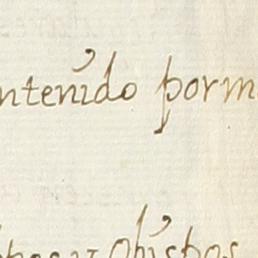 ntenido porm
hos y Obispos